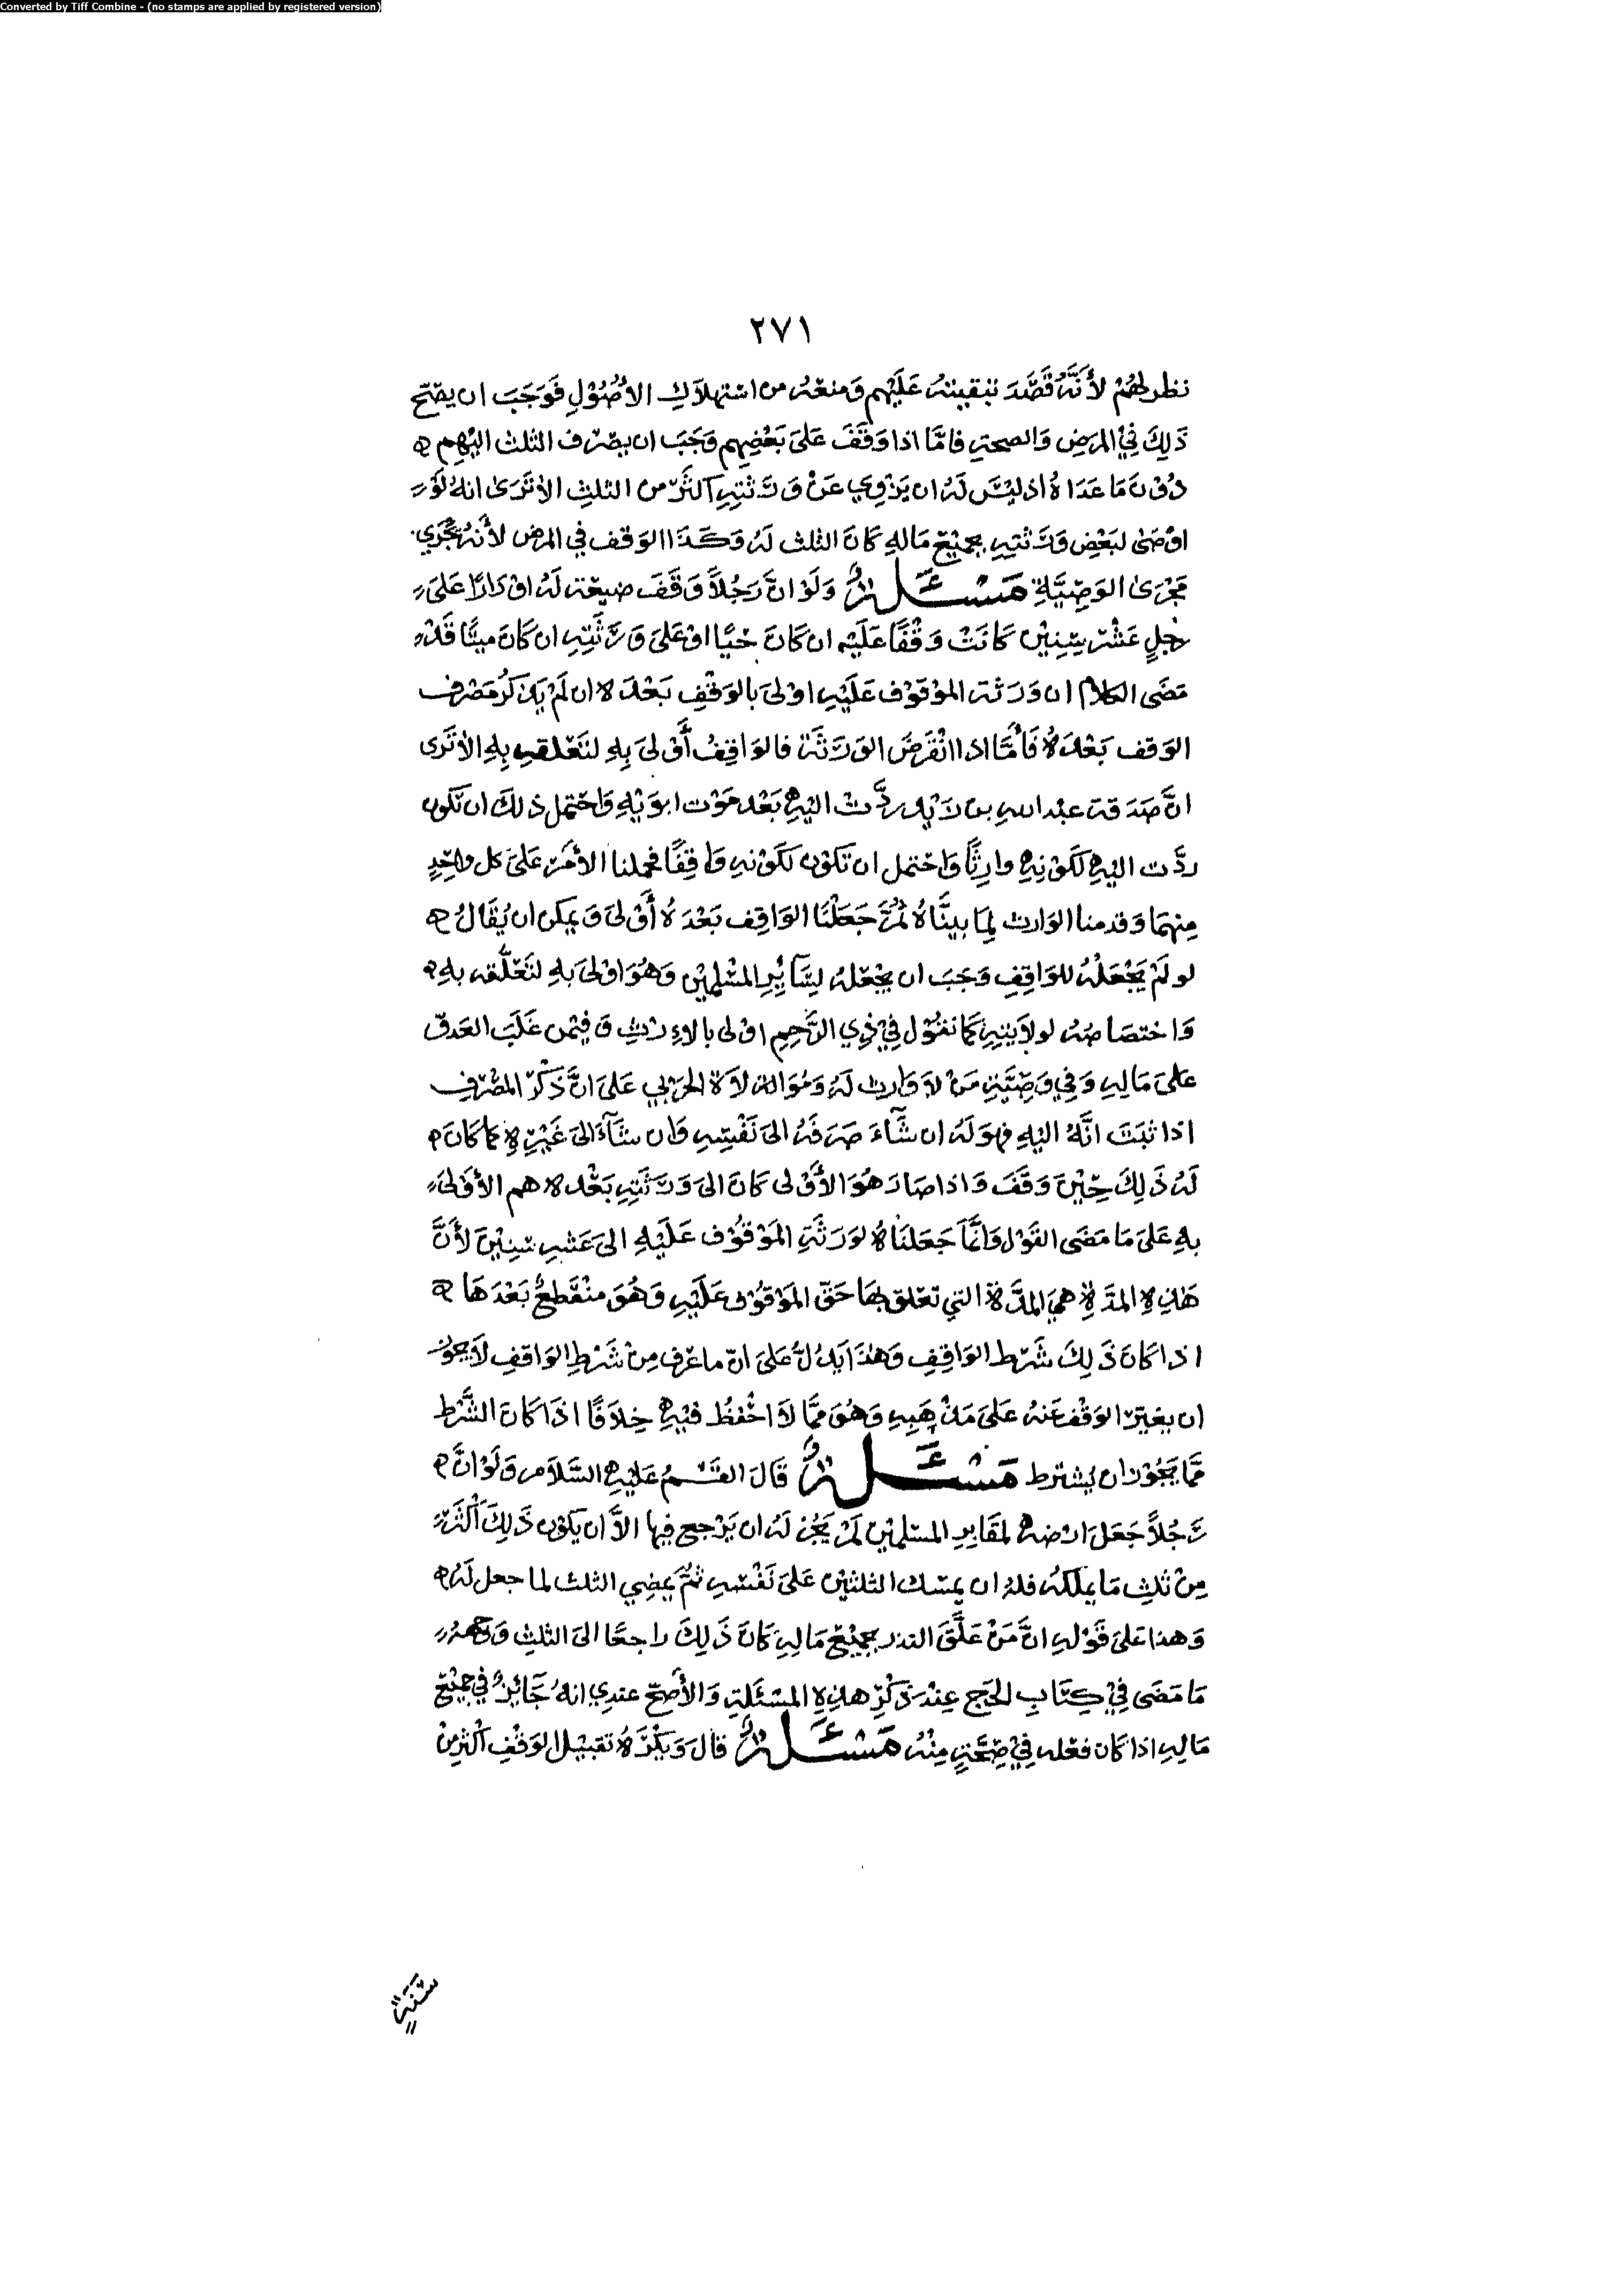 Converted by Tiff Combine - (no stamps are applied by registered version)
٢٧١
نظر لهُمْ لأَنَّهُ قَصَدَ تبقيتهُ عَلَيْهم وَمنعَهُ من اسْتهلاَكِ الأُصُوْلِ فَوَجَبَ ان يصّحّ
ذَلِكَ فِيْ المرَضِ وَالصحةِ فامَّا اذا وَقَفَ عَلىَ بَعْضِهِم وَجَبَ ان يصْرف الثلث اليْهِم
دُوْنَ مَا عَدَاهُ اذ ليْسَ لَهُ ان يَزْوِي عَنْ وَرَثَتِهِ اكْثَرَ من الثلثِ الاتَرَىٰ انهُ لَوْ
اوْصَىٰ لبَعْضِ وَرَثتِهِ بجميْعِ مَالهِ كَانَ الثلث لَهُ وَكَذَا الوَقف في المرض لأَنهُ يَجْرِي
مَجْرَىٰ الوَصِيَّةِ مَسْئَلَةٌ وَلَوْ انَّ رَجُلاً وَقَفَ ضيعَة لَهُ اوْ دَارًا عَلىَ
رَجُلٍ عَشْرَ سِنِيْنَ كَانَتْ وَقْفًا عَلَيْهِ ان كَانَ حَيًّا اوْ عَلىَ وَرَثَتِهِ ان كَانَ ميتًا قَدْ
مَضَى الكلام ان وَرَثة الموْقوْف عَلَيْهِ اوْلىَ بالوَقْفِ بَعْدَه ان لَمْ يذكَرْ مَصْرف
الوَقف بَعْدَهُ فَأَمَّا اذا انْقَرَضَ الوَرَثَة فالوَاقِفُ أَوْلىَ بِهِ لتَعَلقهِ بِهِ الاتَرى
انَّ صَدَقة عبْد اللهِ بن زَيْد ردَّتْ اليْهِ بَعْد مَوْت ابوَيْهِ وَاحْتمل ذلكَ ان تكون
ردَّت اليْهِ لكَوْنِهِ وارِثًا وَاحْتمل ان تكَوْن لكَوْنهِ وَاقِفًا فحملنا الأَمْرَ عَلىَ كل واحِدٍ
مِنهمَا وَقدمنا الوَارث لِمَا بينَّاهُ ثُمَّ جَعَلْنَا الوَاقِف بَعْدَهُ أَوْلىَ وَيمكن ان يُقَالُ
لو لَمْ يَجْعَلْهُ للوَاقِفِ وَجَبَ ان يجْعَلهُ لِسَآئِرِ المسْلِميْنَ وَهُوَ اوْلىَ بهِ لتَعَلُّقهِ بهِ
وَاختصَاصهُ لولاَيتهِ كمَا نقوْل فِيْ ذِي الرَّحِمِ اوْلى بالاِرْثِ وَفيْمن غَلَبَ العَدوّ
عَلىَ مَالِهِ وَفِي وَصِيَّةِ مَنْ لاَ وَارِث لَهُ وَمُوَالاة الحَرْبي عَلىَ انَّ ذَكْرَ المصْرَفِ
اذا ثبَتَ انَّهُ اليْهِ فهوَ لَهُ ان شَآءَ صَرَفَهُ الىَ نَفْسِهِ وَان شَآءَ الىَ غَيْرِهِ كما كَانَ
لَهُ ذَلِكَ حِيْنَ وَقَفَ وَاذا صَارَ هُوَ الأَوْلى كَانَ الىَ وَرَثتِهِ بَعْده هم الأَوْلىَ
بهِ عَلىَ مَا مَضَى القَوْل وَانَّمَا جَعَلنَاهُ لوَرَثَةِ الموْقوْف عَلَيْهِ الىَ عَشرِ سِنِيْنَ لأَنَّ
هَذِهِ المدَّةِ هِيَ المدَّة التي تعَلق بهَا حَقّ الموْقوْف عَلَيْهِ وَهُوَ منْقَطعٌ بَعْدَهَا
اذا كَانَ ذَلِكَ شَرْط الوَاقِفِ وَهَذا يَدُلُّ عَلىَ انّ ما عرَف مِنْ شَرْطِ الوَاقفِ لاَ يجوْز
ان يغيرَ الوَقْف عَنهُ عَلىَ مَذْهَبِهِ وَهُوَ ممَّا لاَ احْفظُ فيْهِ خِلاَفًا اذَا كَانَ الشَّرْط
ممَّا يَجُوْز ان يشترط مَسْئَلَةٌ قَالَ القسمُ عَليْهِ السَّلاَم وَلَوْ انَّ
رَجُلاً جَعَلَ ارْضهُ لمقَابرِ المسْلميْن لَمْ يَجُزْ لَهُ ان يَرْجع فيها الاَّ ان يكوْن ذَلِكَ اكْثَرَ
مِنْ ثلثِ مَا يملكهُ فلهُ ان يمسك الثلثيْن عَلىَ نَفْسهِ ثمَّ يمضِي الثلث لما جعل لَهُ
وَهذا عَلىَ قَوْلهِ انَّ مَنْ عَلَّقَ النذر بجميْع مَالِهِ كَانَ ذَلِكَ راجعًا الىَ الثلثِ وَوجْههُ
مَا مَضَى فِيْ كِتَابِ الحَج عِنْدَ ذَكْرِ هذِهِ المسْئَلةِ وَالأَصحّ عندِي انهُ جَآئزٌ في جميْع
مَالِهِ اذا كَان فعْله فِيْ صِحَّةٍ مِنْهُ مَسْئَلَةٌ قالَ وَيكْرَهُ تقبيل الوَقْفِ اكْثر منْ
سَنَةٍ